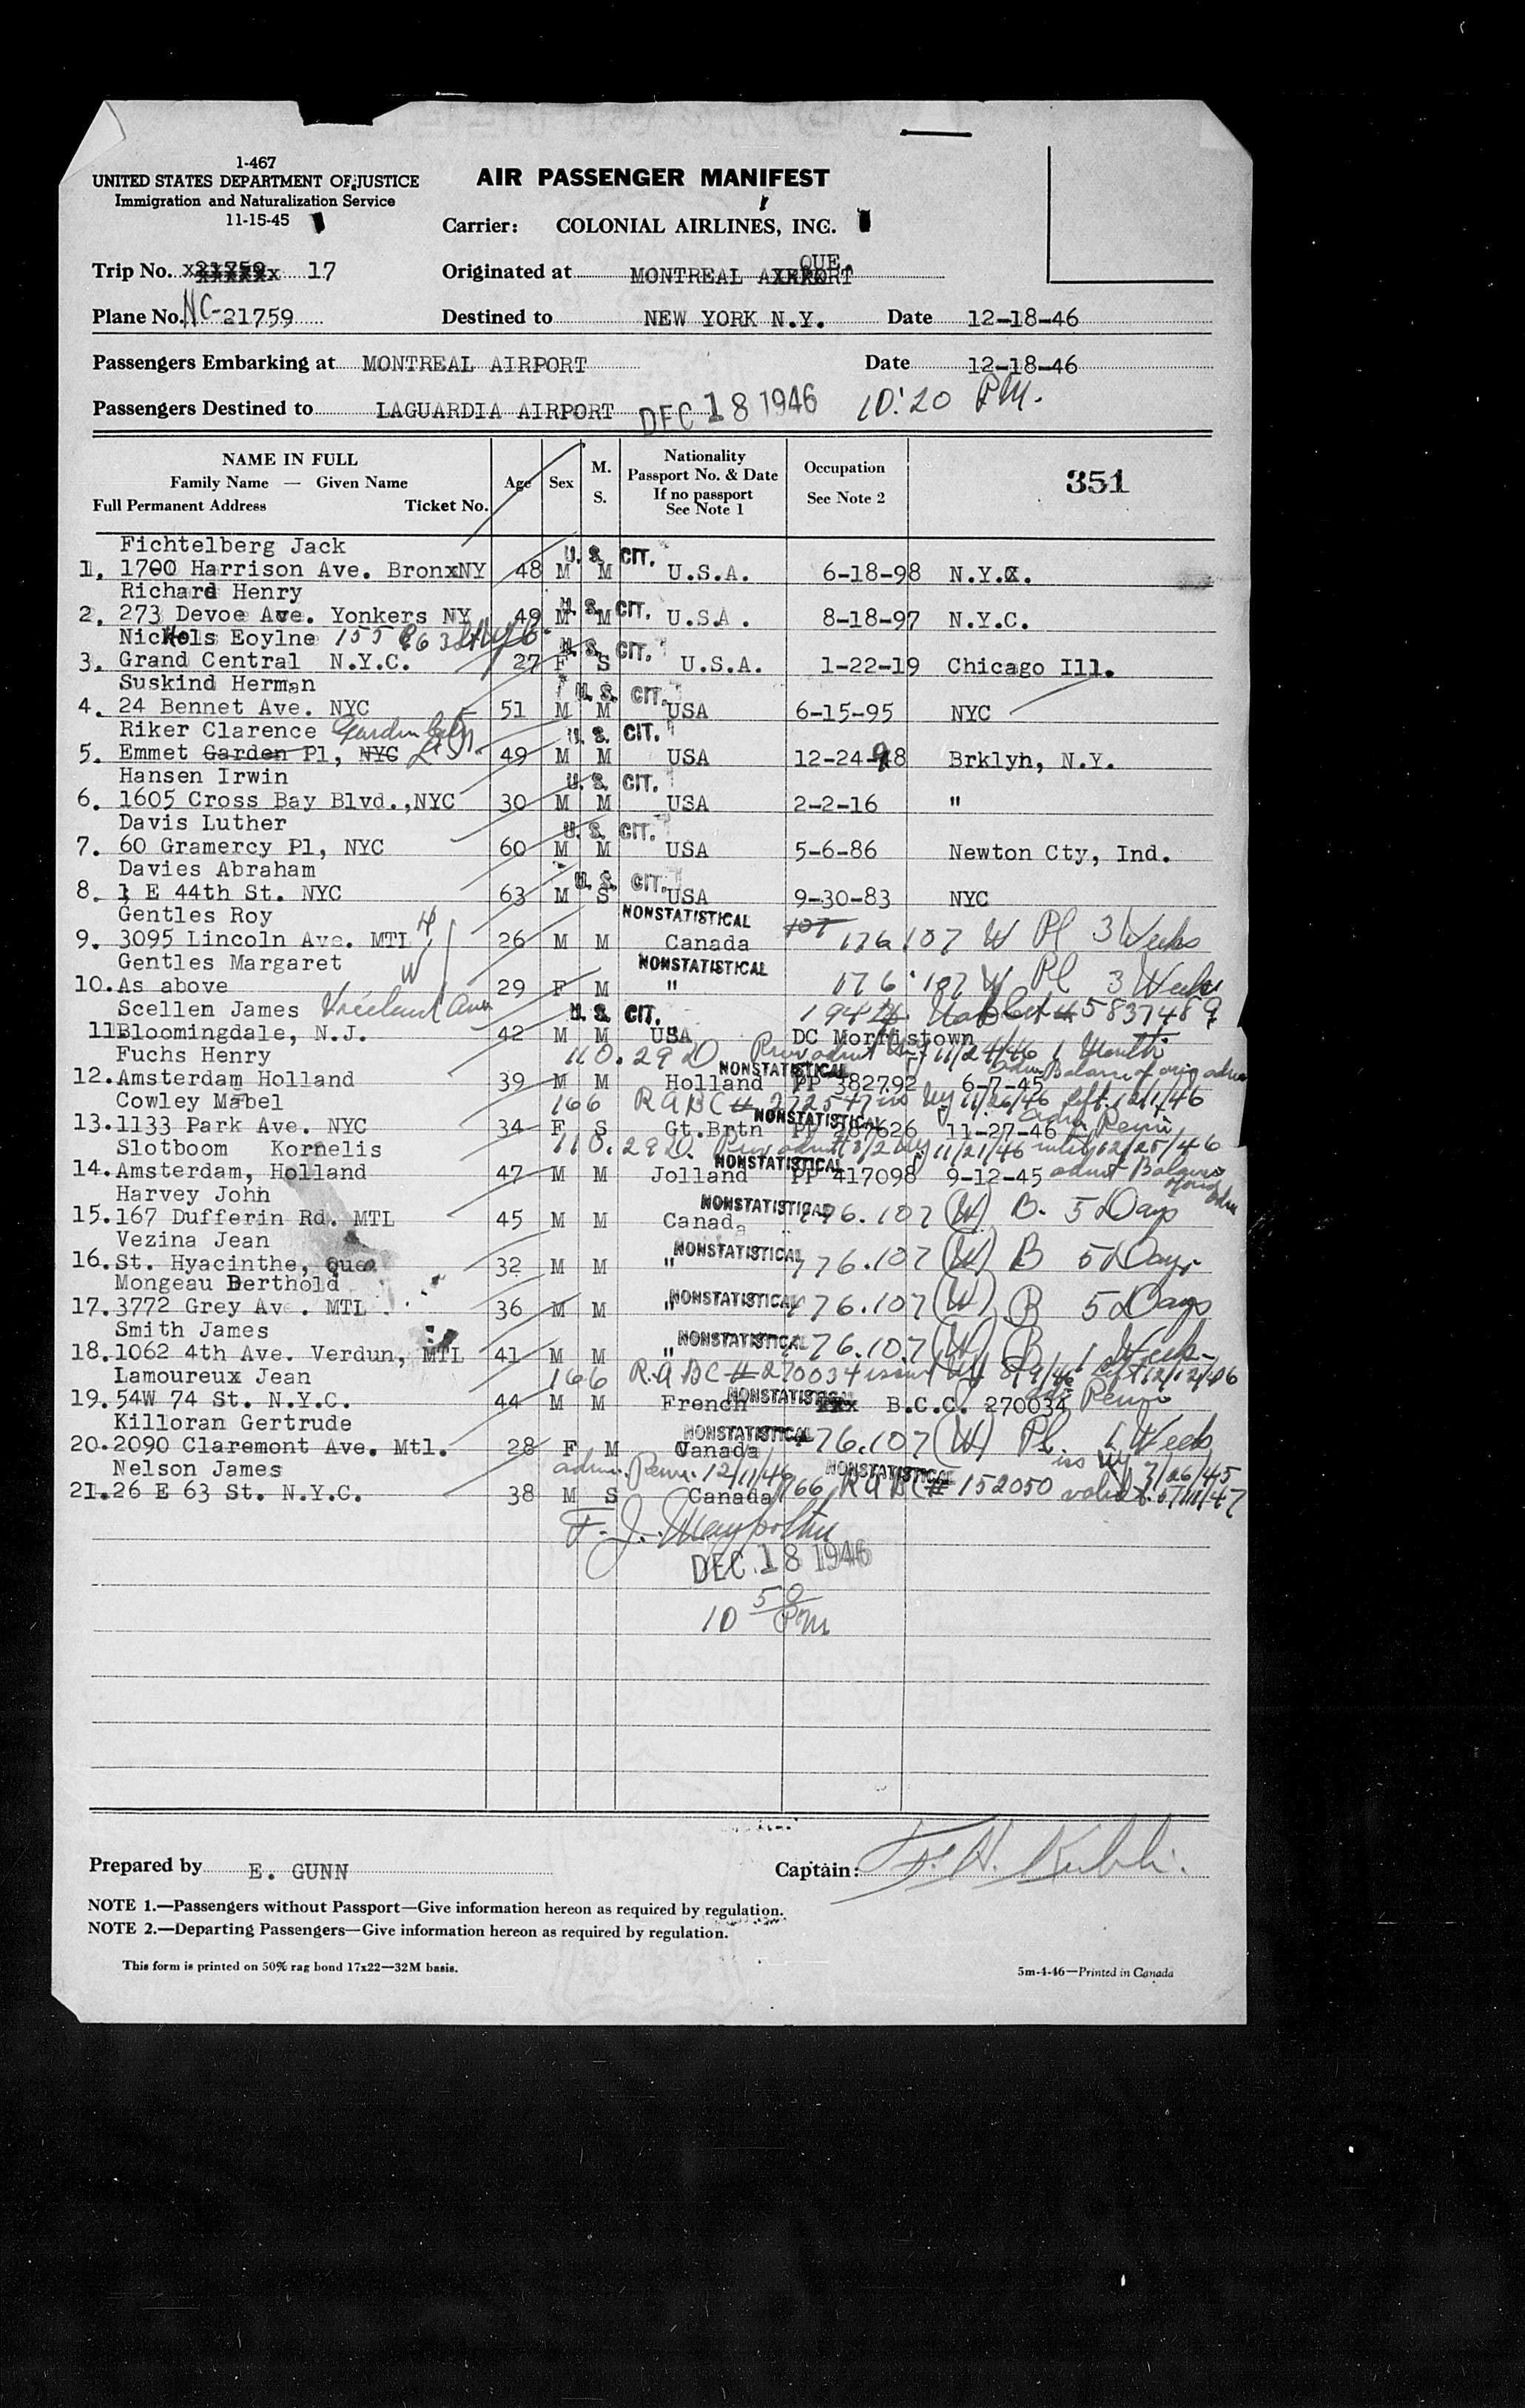 1-467
UNITED STATES DEPARTMENT OF JUSTICE
Immigration and Naturalization Service
11-15-45
AIR PASSENGER MANIFEST
Carrier: COLONIAL AIRLINES, INC.
Trip No. 17
Originated at MONTREAL QUE.
Plane No. NC-21759
Destined to NEW YORK N.Y. Date 12-18-46
Passengers Embarking at MONTREAL AIRPORT Date 12-18-46
Passengers Destined to LAGUARDIA AIRPORT DEC 18 1946 10:20 PM.
NAME IN FULL
Family Name — Given Name
Full Permanent Address Ticket No.
Age Sex M. S.
Nationality
Passport No. & Date
If no passport
See Note 1
Occupation
See Note 2
351
Fichtelberg Jack U. S. CIT.
1. 1700 Harrison Ave. BronxNY 48 M M U.S.A. 6-18-98 N.Y.C.
Richard Henry U. S. CIT.
2. 273 Devoe Ave. Yonkers NY 49 M M U.S.A. 8-18-97 N.Y.C.
Nichols Eoylne 155 E 63 St NYC U. S. CIT.
3. Grand Central N.Y.C. 27 F S U.S.A. 1-22-19 Chicago Ill.
Suskind Herman U. S. CIT.
4. 24 Bennet Ave. NYC 51 M M USA 6-15-95 NYC
Riker Clarence Garden City U. S. CIT.
5. Emmet Garden Pl, NYC L.I. 49 M M USA 12-24-98 Brklyn, N.Y.
Hansen Irwin U. S. CIT.
6. 1605 Cross Bay Blvd.,NYC 30 M M USA 2-2-16 "
Davis Luther U. S. CIT.
7. 60 Gramercy Pl, NYC 60 M M USA 5-6-86 Newton Cty, Ind.
Davies Abraham U. S. CIT.
8. 1 E 44th St. NYC 63 M S USA 9-30-83 NYC
Gentles Roy H NONSTATISTICAL
9. 3095 Lincoln Ave. MTL 26 M M Canada 176.107 W Pl 3 Weeks
Gentles Margaret W NONSTATISTICAL
10. As above 29 F M " 176.107 W Pl 3 Weeks
Scellen James Vreeland Ave U. S. CIT. # 5837489
11 Bloomingdale, N.J. 42 M M USA DC Morristown
Fuchs Henry 110.29 D 11/24/46 1 Month NONSTATISTICAL
12. Amsterdam Holland 39 M M Holland PP 382792 6-7-45 adm Balance of orig adm
Cowley Mabel 166 RABC # iss NY 11/26/46 left 12/1/46 NONSTATISTICAL
13. 1133 Park Ave. NYC 34 F S Gt.Brtn 11-27-46 adm Perm
Slotboom Kornelis 110.29 D. NY 11/21/46 until 12/25/46 NONSTATISTICAL
14. Amsterdam, Holland 47 M M Jolland PP 417098 9-12-45 admit Balance of orig adm
Harvey John NONSTATISTICAL
15. 167 Dufferin Rd. MTL 45 M M Canada 176.107 (W) B. 5 Days
Vezina Jean NONSTATISTICAL
16. St. Hyacinthe, Que. 32 M M " 176.107 (W) B 5 Days
Mongeau Berthold NONSTATISTICAL
17. 3772 Grey Av . MTL 36 M M " 176.107 (W) B 5 Days
Smith James NONSTATISTICAL
18. 1062 4th Ave. Verdun, MTL 41 M M " 176.107 (W) B 1 Week
Lamoureux Jean 166 R.A BC # 270034 issued NY 8/9/46 left 12/12/46 NONSTATISTICAL
19. 54W 74 St. N.Y.C. 44 M M French B.C.C. 270034 adm Perm
Killoran Gertrude NONSTATISTICAL
20. 2090 Claremont Ave. Mtl. 28 F M Canada 176.107 (W) Pl. 1 Week
Nelson James adm. Perm. 12/11/46 NONSTATISTICAL iss NY 7/26/45
21. 26 E 63 St. N.Y.C. 38 M S Canada 166 RABC # 152050 valid
DEC 18 1946
10 50 PM
Prepared by E. GUNN
Captain:
NOTE 1.—Passengers without Passport—Give information hereon as required by regulation.
NOTE 2.—Departing Passengers—Give information hereon as required by regulation.
This form is printed on 50% rag bond 17x22—32M basis.
5m-4-46—Printed in Canada